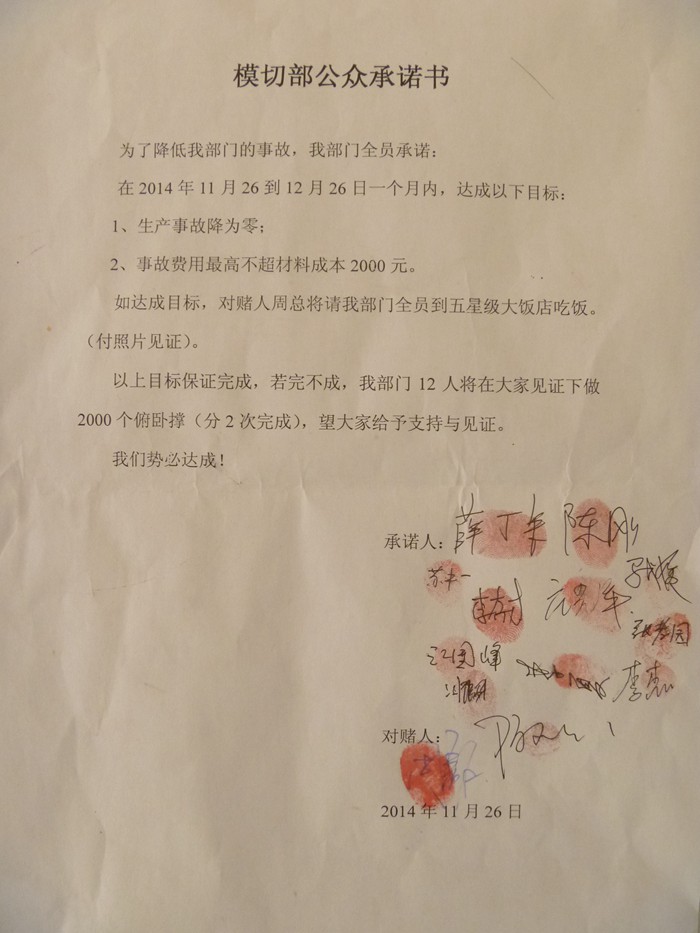 模切部公众承诺书
为了降低我部门的事故，我部门全员承诺：
在 2014 年 11 月 26 到 12 月 26 日一个月内，达成以下目标：
1、生产事故降为零；
2、事故费用最高不超材料成本 2000 元。
如达成目标，对赌人周总将请我部门全员到五星级大饭店吃饭。
（付照片见证）。
以上目标保证完成，若完不成，我部门 12 人将在大家见证下做
2000 个俯卧撑（分 2 次完成），望大家给予支持与见证。
我们势必达成！
承诺人： 陈刚
苏丰一
江国峰 李杰
对赌人：
2014 年 11 月 26 日